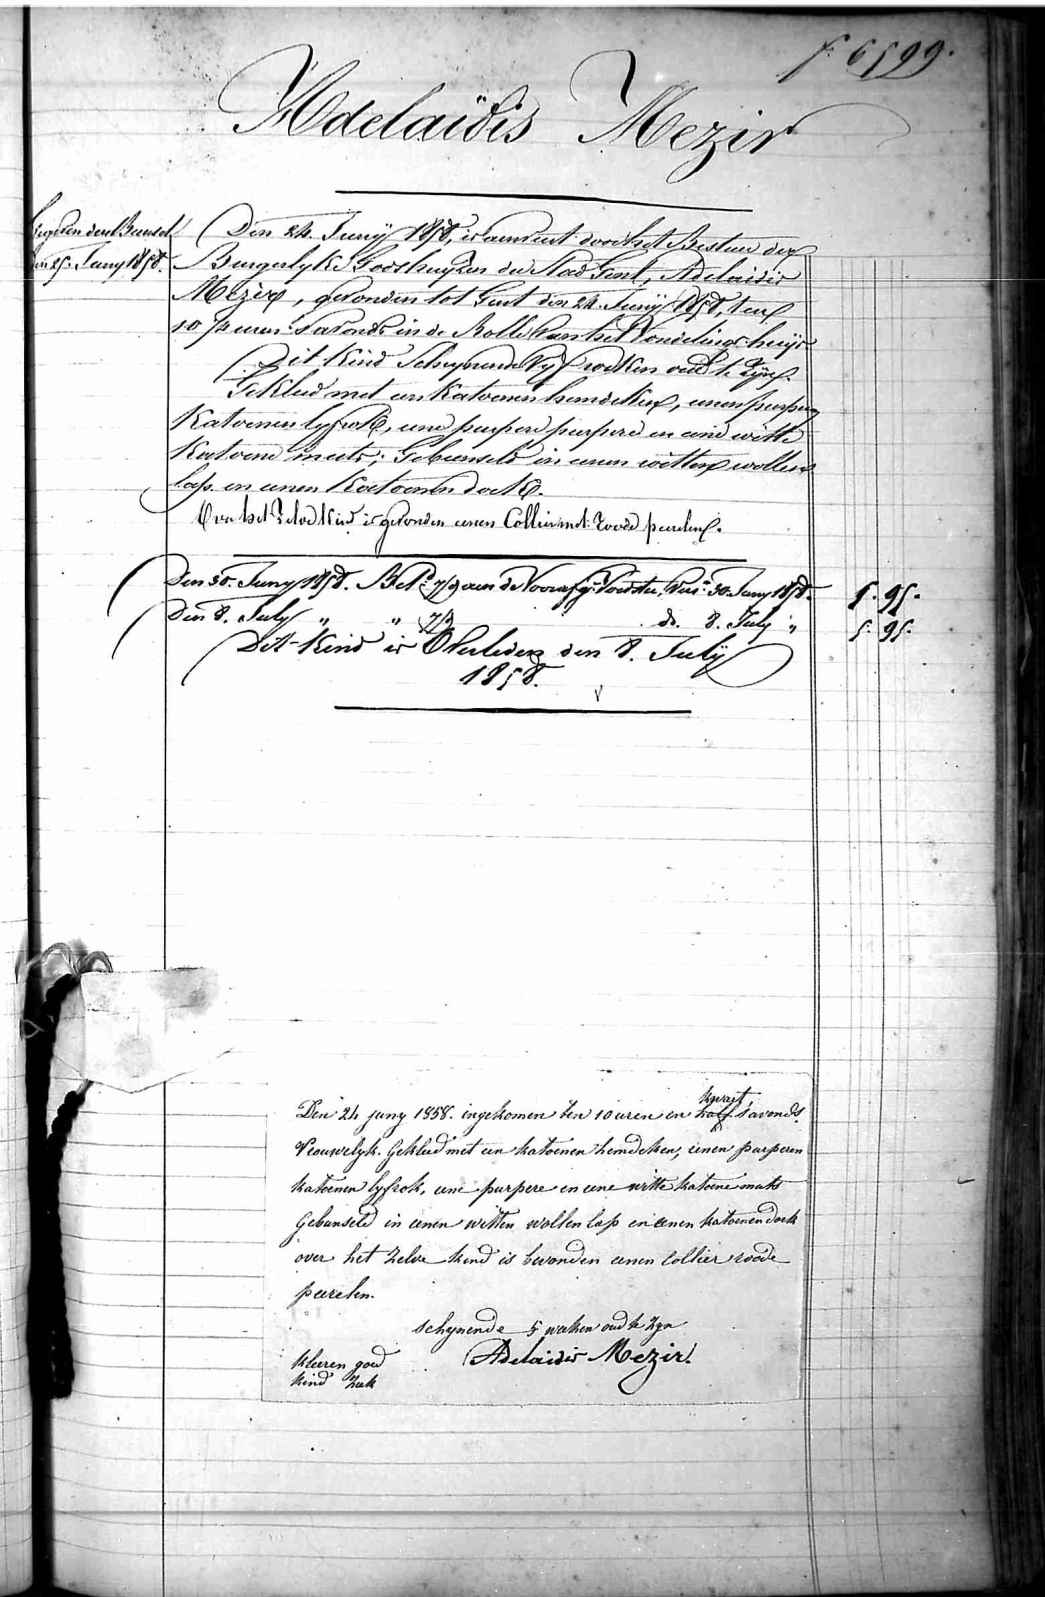 f. 6599.
Adelaïdis Mezir
den 25. Juny 1858.
Den 24. Junÿ 1858, is aenveert door het Bestuer der
Burgerlyke Godshuyzen der Stad Gent, Adelaidis
Mezir, gevonden tot Gent den 24. Junÿ 1858, ten
10 1/4 uren s'avonds in de Rolle van het Vondelings-huijs
Dit Kind Schynende Vyf weken oud te Zyn.
Gekleed met een Katoenen hemdeken, eenen purpere
Katoenen lyfrok, eene purpere purpere en eene witte
Katoene muts; Gebunseld in eenen witten wollen
lap en eenen Katoenen doek.
Over het Zelve Kind is gevonden eenen Collier met Roode peerelen.
Den 30. Juny 1858. 7/9 aen de Voedster, 30. Juny 1858. 5. 95.
Den 8. July " " do. 8. July " 5. 95.
Dit Kind is Overleden den 8. Julÿ
1858.
kwart
Den 24 juny 1858. ingekomen ten 10 uren en half s'avonds
Vrouwelyk. Gekleed met een katoenen hemdeken, eenen purperen
katoenen lyfrok, eene purpere en eene witte katoene muts
Gebunseld in eenen witten wollen lap en eenen katoenen doek
over het zelve kind is bevonden eenen collier roode
peerelen.
schynende 5 weeken oud te zyn
Adelaidis Mezir.
kleeren goed
kind ziek